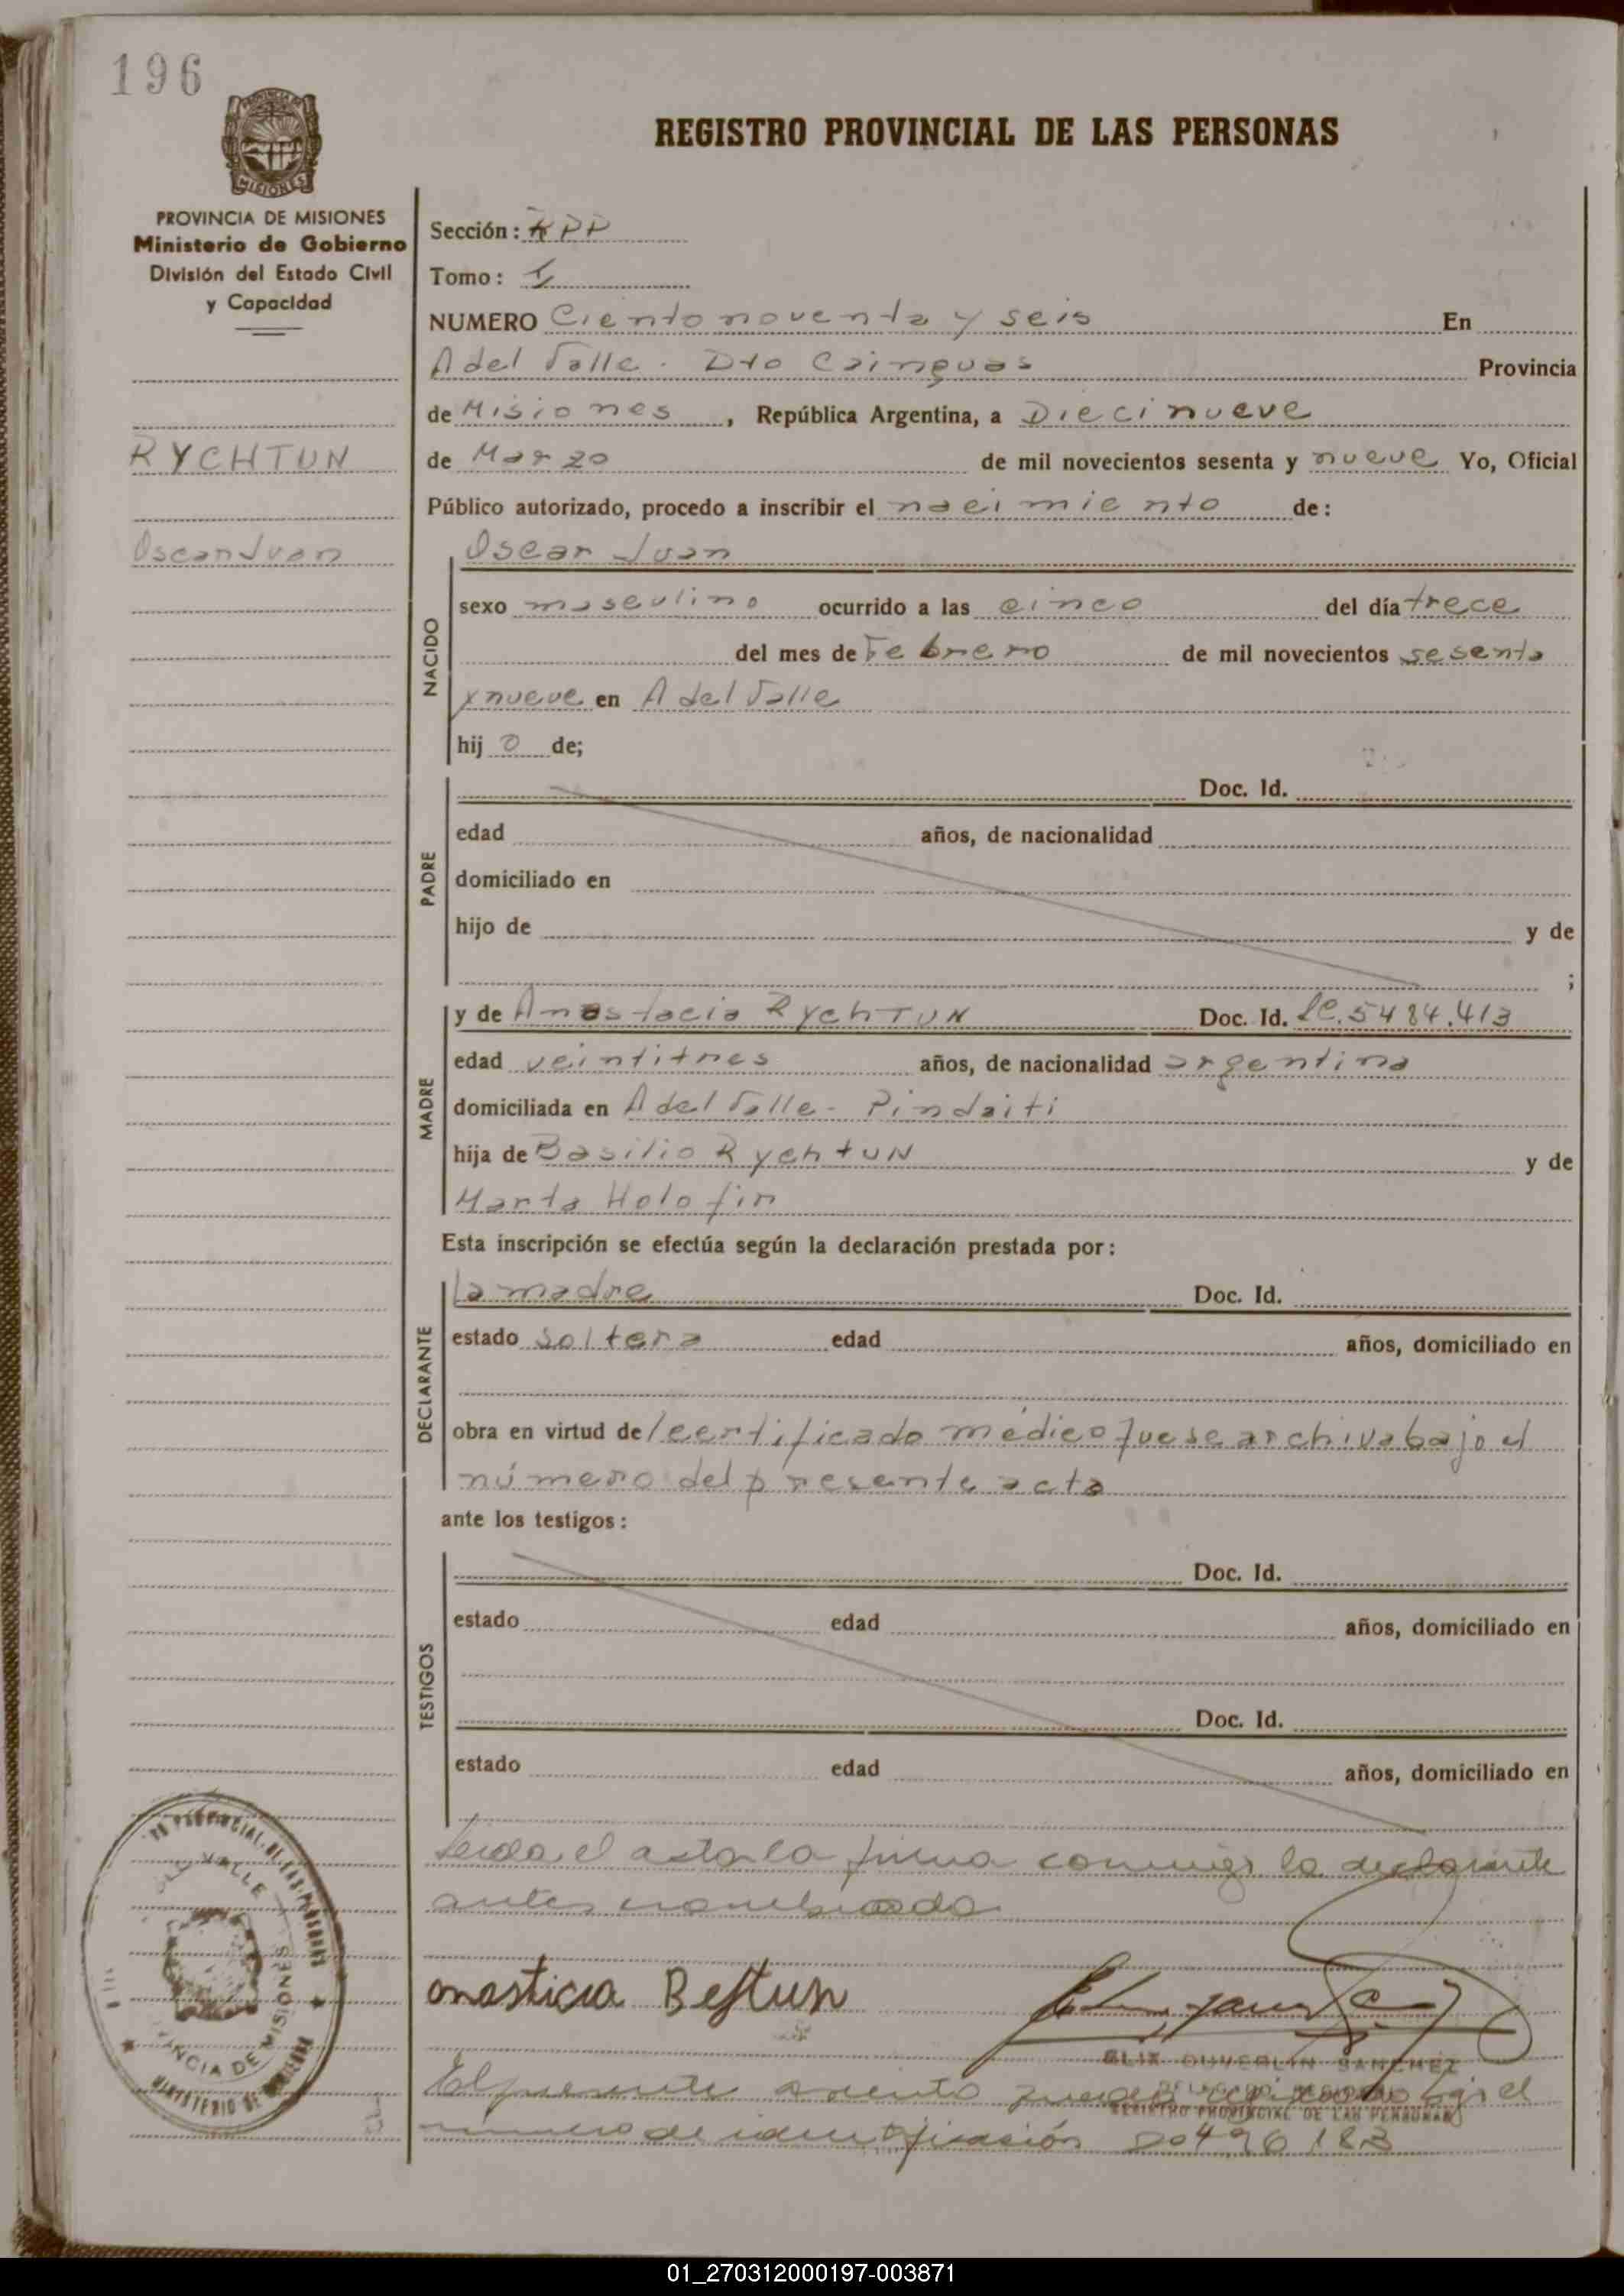 196
REGISTRO PROVINCIAL DE LAS PERSONAS
MISIONES
PROVINCIA DE MISIONES
Ministerio de Gobierno
División del Estado Civil
y Capacidad
Sección:
Tomo: I
NUMERO Ciento noventa y seis En
A del Valle. Dto Cainguas Provincia
de Misiones, República Argentina, a Diecinueve
de Marzo de mil novecientos sesenta y nueve Yo, Oficial
Público autorizado, procedo a inscribir el nacimiento de:
RYCHTUN
Oscar Juan
NACIDO
Oscar Juan
sexo masculino ocurrido a las cinco del día trece
del mes de Febrero de mil novecientos sesenta
y nueve en A del Valle
hij o de;
PADRE
Doc. Id.
edad años, de nacionalidad
domiciliado en
hijo de y de
;
MADRE
y de Anastacia RychTUN Doc. Id. lc. 5484.413
edad veintitres años, de nacionalidad argentina
domiciliada en A del Valle - Pindaiti
hija de Basilio RychtUN y de
Marta Holofin
Esta inscripción se efectúa según la declaración prestada por:
DECLARANTE
la madre Doc. Id.
estado soltera edad años, domiciliado en
obra en virtud de l certificado médico que se archiva bajo el
número del presente acta
ante los testigos:
TESTIGOS
Doc. Id.
estado edad años, domiciliado en
Doc. Id.
estado edad años, domiciliado en
Leida el acta la firma conmigo la declarante
antes nombrada
onasticia Bestun
SANCHEZ
REGISTRO PROVINCIAL DE LAS PERSONAS
El presente asiento bajo el
numero de identificación 20496183
PROVINCIAL DE LAS PERSONAS
DEL VALLE
PROVINCIA DE MISIONES
MINISTERIO DE GOBIERNO
01_270312000197-003871